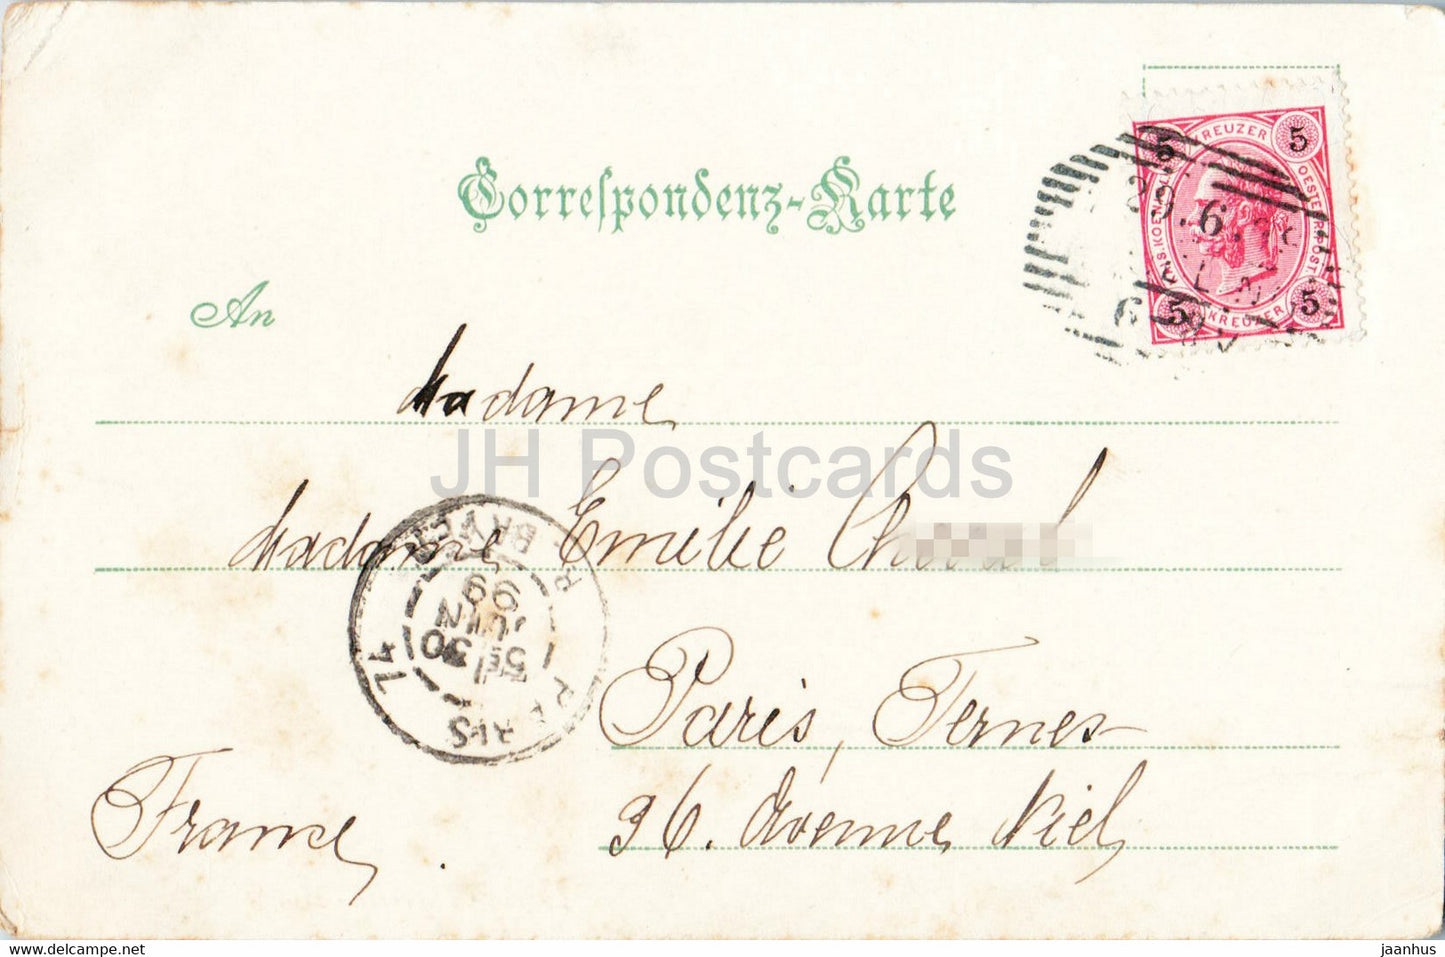 Correspondenz-Karte
KREUZER
OESTERR.POST.
KREUZER
5 5
5 5
29.6.
An
Madame
JH Postcards
Madame Emilie Ch
Paris, Ternes
96. Avenue Niel
France.
PARIS
5E
30
JUIN
99
74
www.delcampe.net
jaanhus